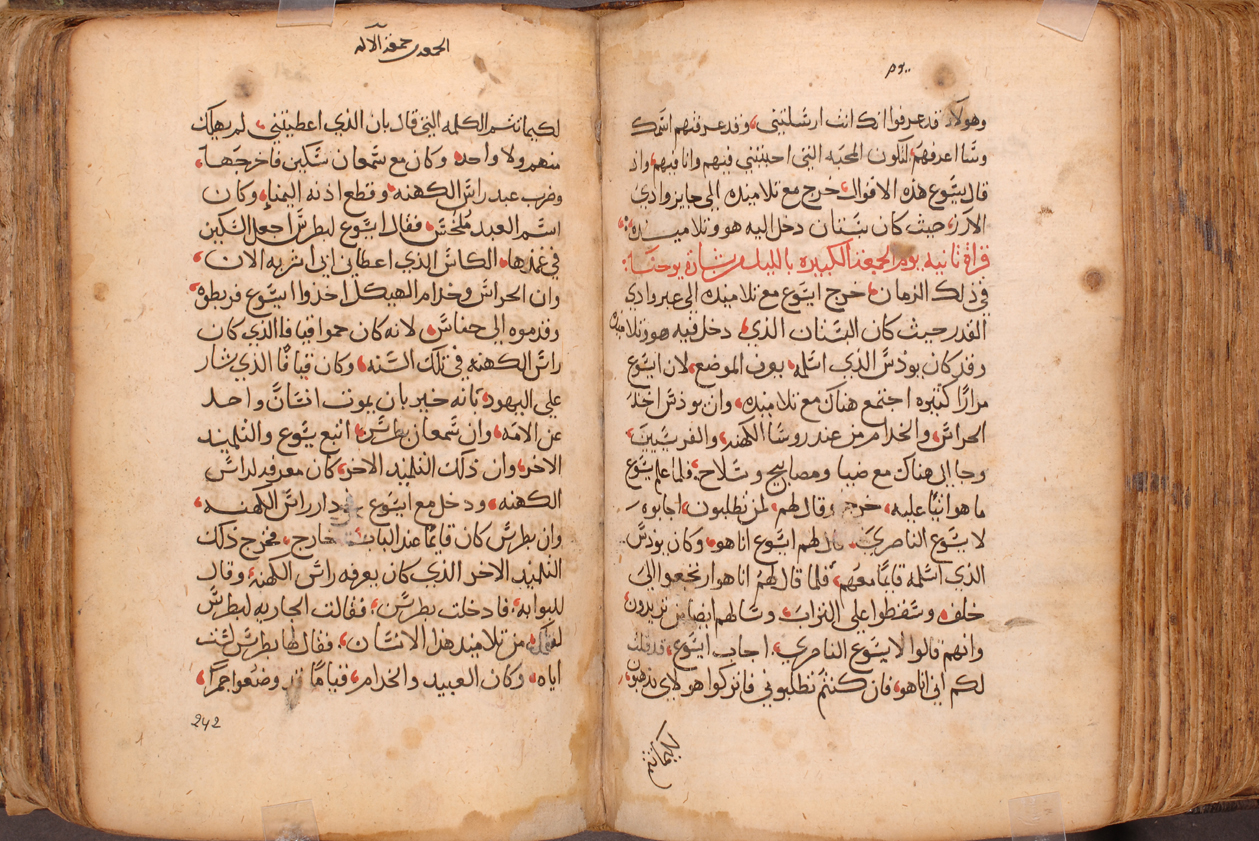 ٢٤٠٠
وهولاء قد عرفوا انك انت ارسلتني، وقد عرفتهم اسمك
وسا اعرفهم لتكون المحبه التي احببتني فيهم وانا فيهم، واذ
قال يسوع هذه الاقوال، خرج مع تلاميذه الى جايز وادي
الارز، حيث كان بستان دخل اليه هو وتلاميذه:
قراة ثانيه يوم الجمعة الكبيره بالليل من بشارة يوحنا:
في ذلك الزمان، خرج ايسوع مع تلاميذه الى عبر وادي
القدر حيث كان البستان الذي، دخل فيه هو وتلاميذه
وقد كان يوذس الذي اسلمه، يعرف الموضع، لان ايسوع
مرارًا كثيره اجتمع هناك مع تلاميذه، وان يوذس اخذ
الحراس، والخدام من عند روسا الكهنه، والفريسيين،
وجا الى هناك مع ضيا ومصابيح وسلاح، فلما علم يسوع
ما هو اتيًا عليه، خرج وقال لهم، لمن تطلبون، اجابوه
لايسوع الناصري، قال لهم ايسوع انا هو، وكان يوذس
الذي اسلمه قايمًا معهم، فلما قال لهم انا هو ارتجعوا الى
خلف، وسقطوا على التراب، وسالهم ايضا من تريدون،
وانهم قالوا لايسوع الناصري، اجاب ايسوع، قد قلت
لكم اني انا هو، فان كنتم تطلبوني فاتركوا هولاي يذهبون،
لكيما تتم
الجمعه جمعة الالام
لكيما تتم الكلمه التي قال بان الذي اعطيتني، لم يهلك
منهم ولا واحد، وكان مع سمعان سكين فاخرجها،
وضرب عبد راس الكهنه، وقطع اذنه اليمنا، وكان
اسم العبد ملخس، فقال ايسوع لبطرس اجعل السكين
في غمدها، الكاس الذي اعطاني ابي اشربه الان،
وان الحراس وخدام الهيكل اخذوا ايسوع فربطوه،
وقدموه الى حناس، لانه كان حموا قيافا الذي كان
راس الكهنه في تلك السنه، وكان قيافا الذي شار
على اليهود، بانه خير بان يموت انسان واحد
عن الامه، وان سمعان بطرس، اتبع يسوع والتلميذ
الاخر، وان ذلك التلميذ الاخر، كان معروفه لراس
الكهنه، ودخل مع ايسوع الى دار راس الكهنه،
وان بطرس كان قايمًا عند الباب، خارج، فخرج ذلك
التلميذ الاخر الذي كان يعرفه راس الكهنه، وقال
للبوابه، فادخلت بطرس، فقالت الجاريه لبطرس
لعلك، من تلاميذ هذا الانسان، فقال لها بطرس لست
اياه، وكان العبيد والخدام، قيامًا قد وضعوا جمرًا،
242